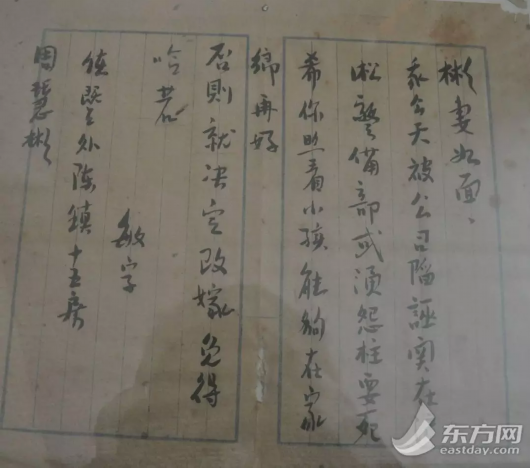 彬妻如面、
我今天被公司陷誣寃在
淞警備部或須怨枉要死
希你照看小孩能夠在家
鄉再好
否則就决定改嫁免得
吃苦
敏字
外陈鎮十五房
周慧彬
东方网
eastday.com